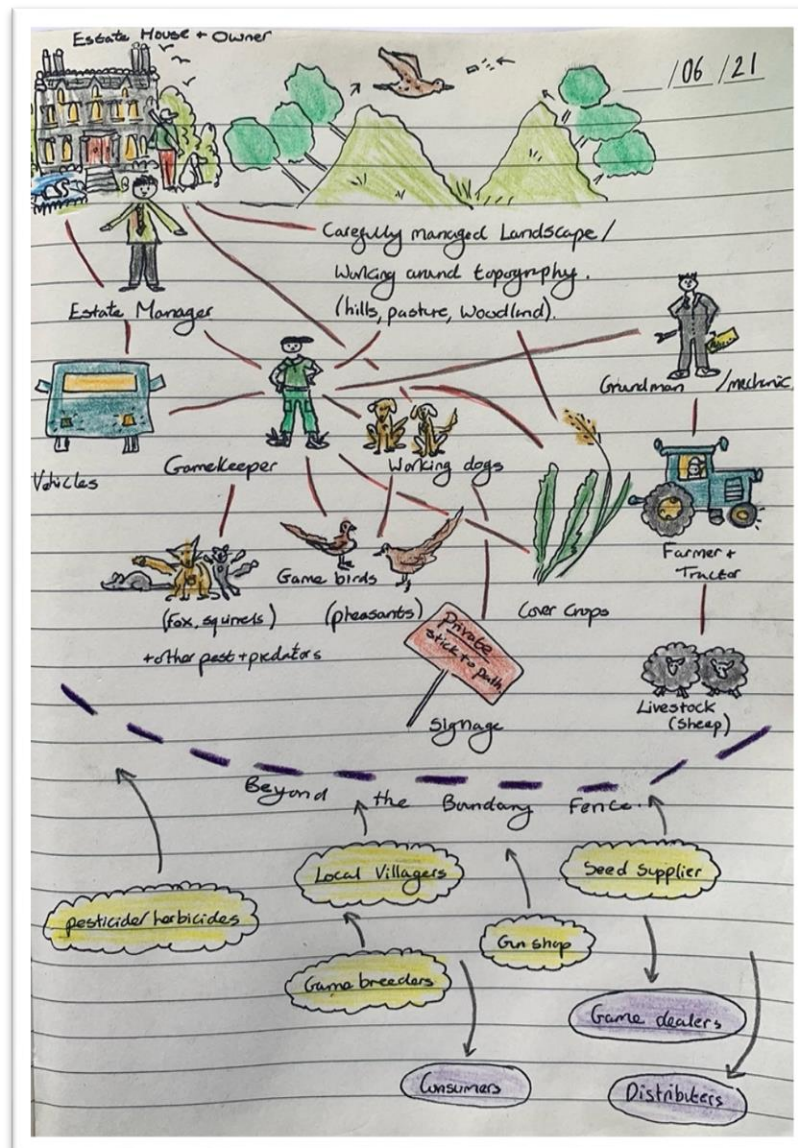 Estate House + Owner
__/06/21
Carefully managed Landscape/
Working around topography.
(hills, pasture, Woodland).
Estate Manager
Grundman /mechanic
Vehicles
Gamekeeper
Working dogs
Farmer +
Tractor
Game birds
(fox, squirrels)
(pheasants)
Cover Crops
+other pest + predators
Private
stick to path.
Signage
Livestock
(sheep)
Beyond the Boundary Fence.
Local Villagers
Seed Supplier
pesticide/herbicides
Gun shop
Game breeders
Game dealers
Consumers
Distributers